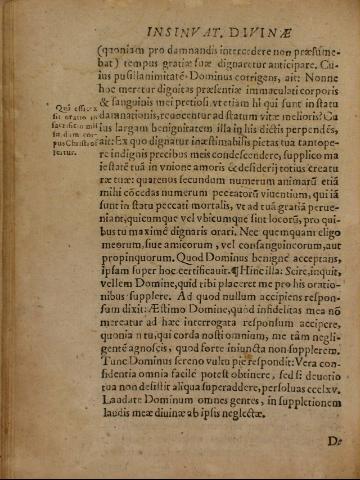 INSINVAT. DIVINÆ
(quoniam pro damnandis intercedere non præsume-
bat) tempus gratiæ suæ dignaretur anticipare. Cu-
ius pusillanimitatē Dominus corrigens, ait: Nonne
hoc meretur dignitas præsentiæ immaculati corporis
& sanguinis mei pretiosi, vt etiam hi qui sunt in statu
damnationis, reuocentur ad statum vitæ melioris? Cu
ius largam benignitatem illa in his dictis perpendēs,
ait: Ex quo dignatur inæstimabilis pietas tua tantope-
re indignis precibus meis condescendere, supplico ma
iestatē tuā in vnione amoris & desiderij totius creatu
ræ tuæ: quatenus secundum numerum animarū etiā
mihi cōcedas numerum peccatorū viuentium, qui iā
sunt in statu peccati mortalis, vt ad tuā gratiā perue-
niant, quicumque vel vbicumque siut locorū, pro qui-
bus tu maximē dignaris orari. Nec quemquam eligo
meorum, siue amicorum, vel consanguineorum, aut
propinquorum. Quod Dominus benignē acceptans,
ipsam super hoc certificauit. ¶ Hinc illa: Scire, inquit,
vellem Domine, quid tibi placeret me pro his oratio-
nibus supplere. Ad quod nullum accipiens respon-
sum dixit: Æstimo Domine, quòd infidelitas mea nō
mereatur ad hæc interrogata responsum accipere,
quonia n tu, qui corda nosti omnium, me tām negli-
gentē agnoscis, quòd forte iniuncta non supplerem.
Tunc Dominus sereno vultu piē respondit: Vera con-
fidentia omnia facilē potest obtinere, sed si deuotio
tua non desistit aliqua superaddere, persoluas ccclxv.
Laudate Dominum omnes gentes, in suppletionem
laudis meæ diuinæ ab ipsis neglectæ.
Quā efficax
sit oratio in
sacrificio mis
sæ, dum cor-
pus Christi of
fertur.
De